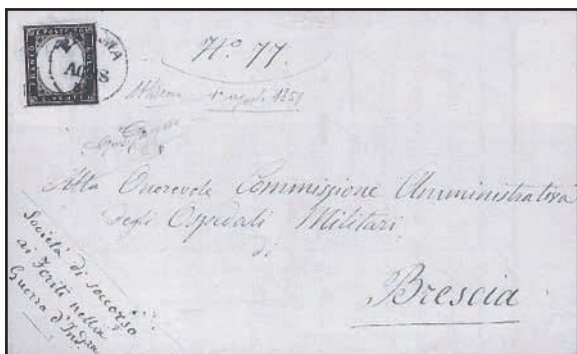 N.° 77.
1859
Alla Onorevole Commissione Amministrativa
degli Ospedali Militari
di
Brescia
Società di soccorso
ai Feriti nella
Guerra d'Ind.za